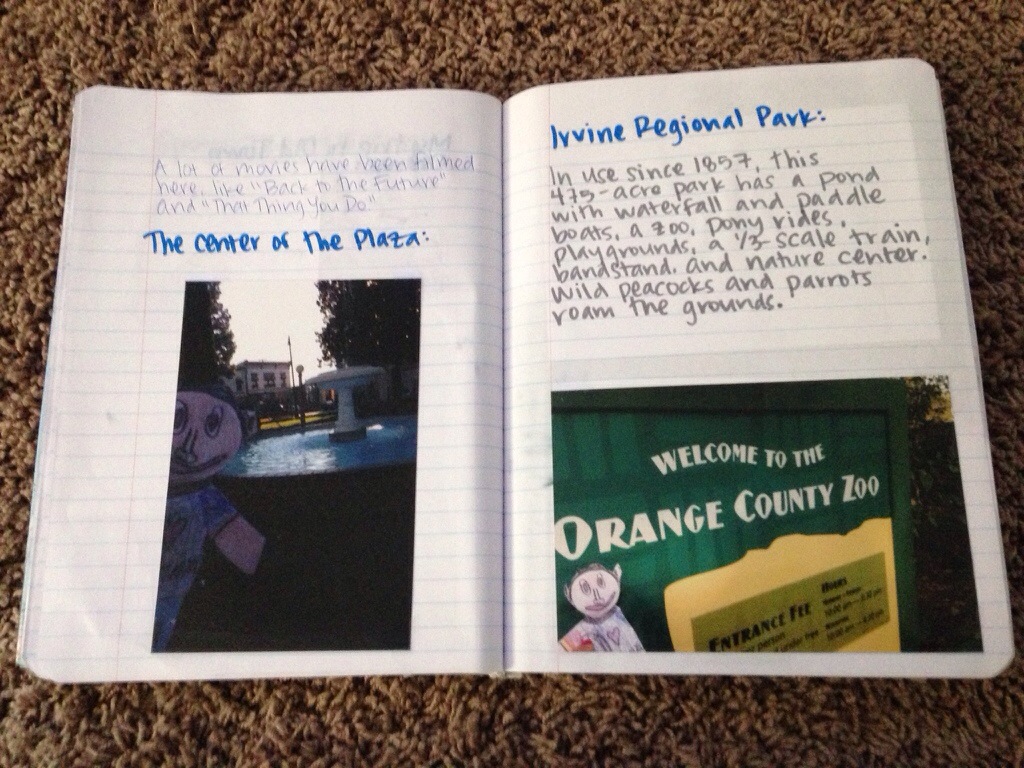 A lot of movies have been filmed
here, like "Back to The Future"
and "That Thing You Do"
The center of the Plaza:
Irvine Regional Park:
In use since 1857, this
475-acre park has a pond
with waterfall and paddle
boats, a zoo, pony rides,
playgrounds, a 1/3-scale train,
bandstand, and nature center.
Wild peacocks and parrots
roam the grounds.
WELCOME TO THE
ORANGE COUNTY ZOO
ENTRANCE FEE
HOURS